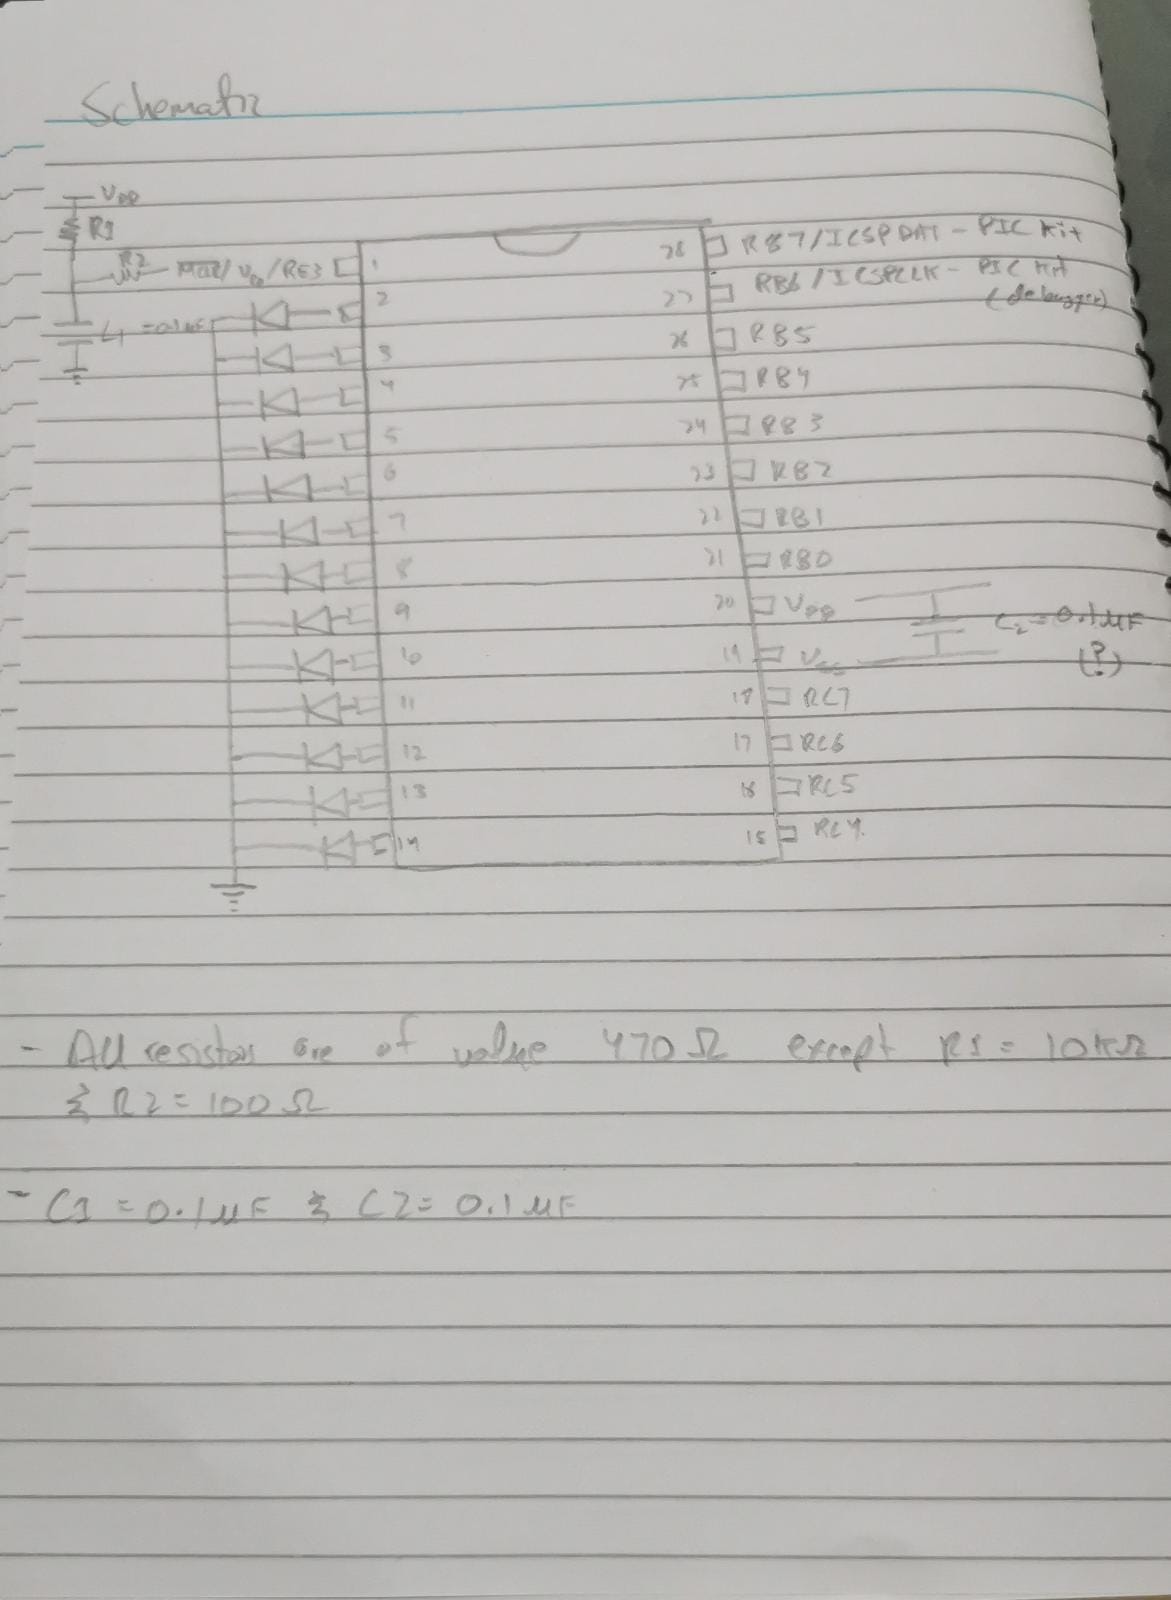 Schematic
VDD
R1
R2
MCLR/VPP/RE3
C1 = 0.1 μF
1
2
3
4
5
6
7
8
9
10
11
12
13
14
28 RB7/ICSPDAT - PIC Kit
27 RB6/ICSPCLK - PIC Kit
(debugger)
26 RB5
25 RB4
24 RB3
23 RB2
22 RB1
21 RB0
20 VDD
C2 = 0.1 μF
(?)
19
18 RC7
17 RC6
16 RC5
15 RC4
- All resistors are of value 470 Ω except R1 = 10 kΩ
& R2 = 100 Ω
- C1 = 0.1 μF & C2 = 0.1 μF